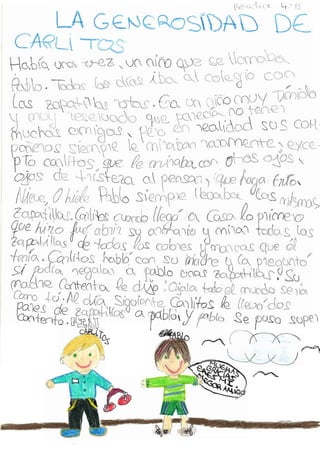 Beatriz 4ºB
LA GENEROSIDAD DE
CARLITOS
Había una vez, un niño que se llamaba
Pablo. Todos los días iba al colegio con
las zapatillas rotas. Era un niño muy tímido
y muy reservado que parecía no tener
muchos amigos, pero en realidad sus com-
pañeros siempre le miraban raramente, exce-
pto carlitos, que le miraba con otros ojos,
ojos de tristeza al pensar, que haga frío,
Nieve, O hiele Pablo siempre llegaba las mismas
zapatillas. Carlitos cuando llegó a Casa lo primero
que hizo fue abrir su armario y mirar todas las
zapatillas de todos los colores y marcas que él
tenía. Carlitos habló con su madre y la preguntó
si podía regalar a pablo unas zapatillas. Su
madre Contenta le dijo: Ojala todo el mundo sería
Como tú. Al día Siguiente Carlitos le llevó dos
pares de zapatillas a pablo, y pablo se puso super
contento.
CARLITOS
PABLO
MUCHAS
GRACIAS
ERES MI
MEJOR AMIGO